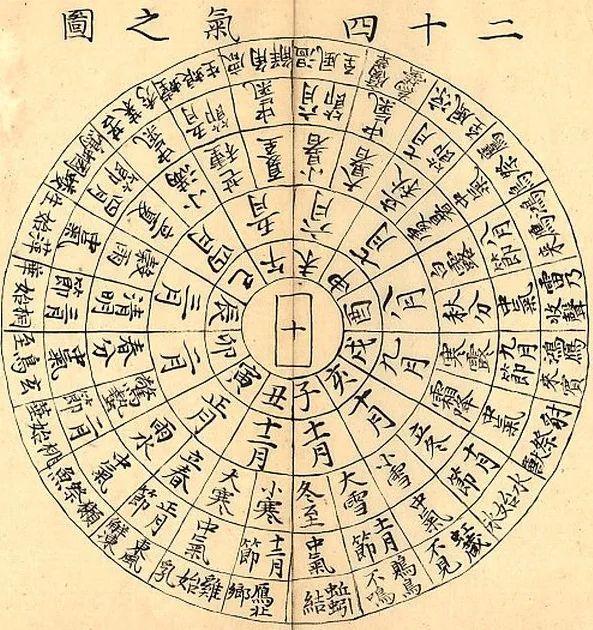 二十四氣之圖
十
子
丑
寅
卯
辰
巳
午
未
申
酉
戌
亥
十一月
十二月
正月
二月
三月
四月
五月
六月
七月
八月
九月
十月
冬至
小寒
大寒
立春
雨水
驚蟄
春分
清明
穀雨
立夏
小滿
芒種
夏至
小暑
大暑
立秋
處暑
白露
秋分
寒露
霜降
立冬
小雪
大雪
中氣
十二月節
中氣
正月節
中氣
二月節
中氣
三月節
中氣
四月節
中氣
五月節
中氣
六月節
中氣
七月節
中氣
八月節
中氣
九月節
中氣
十月節
中氣
十一月節
蚯蚓結
鴈北鄉
雞始乳
東風解凍
獺祭魚
桃始華
玄鳥至
桐始華
萍始生
螻蟈鳴
苦菜秀
螳螂生
鹿角解
溫風至
涼風至
鷹祭鳥
雷乃收聲
鴻鴈來賓
豺祭獸
水始冰
虹藏不見
鶡鳥不鳴